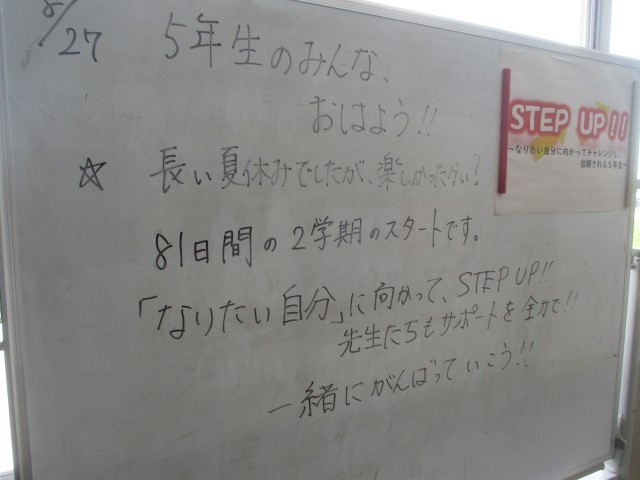 8/27 5年生のみんな、
おはよう!!
☆ 長い夏休みでしたが、楽しかったかい?
81日間の2学期のスタートです。
「なりたい自分」に向かって、STEP UP!!
先生たちもサポートを全力で!!
一緒にがんばっていこう!!
STEP UP!!
~なりたい自分に向かってチャレンジし、
信頼される5年生~